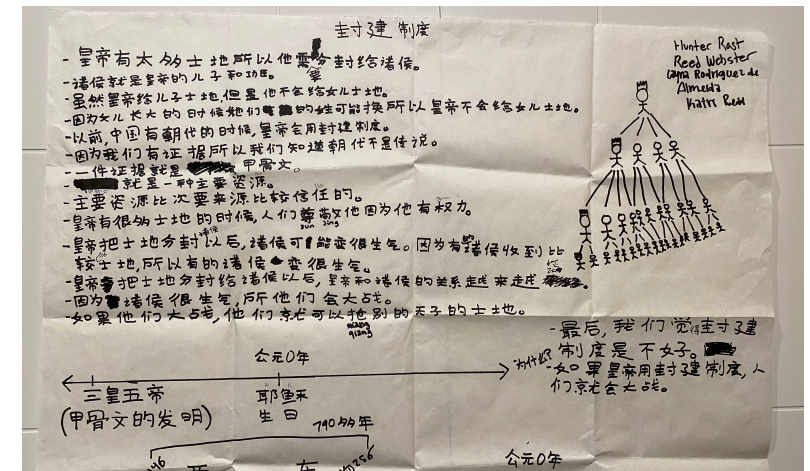 封建制度
Hunter Rast
Reed Webster
Rodriguez de
Almeida
Katri
- 皇帝有太多土地所以他需要分封给诸侯。
- 诸侯就是皇帝的儿子和功臣。
- 虽然皇帝给儿子土地,但是他不会给女儿土地。
- 因为女儿长大的时候她们的姓可能换所以皇帝不会给女儿土地。
- 以前,中国有朝代的时候,皇帝会用封建制度。
- 因为我们有证据所以我们知道朝代不是传说。
- 一件证据就是甲骨文。
- 就是一种主要资源。
- 主要资源比次要来源比较信任的。
- 皇帝有很多土地的时候,人们尊敬他因为他有权力。
zun jing
- 皇帝把土地分封以后,诸侯可能变很生气。因为有的诸侯收到比
较土地,所以有的诸侯变很生气。
- 皇帝把土地分封给诸侯以后,皇帝和诸侯的关系越来越
- 因为诸侯很生气,所他们会大战。
- 如果他们大战,他们就可以抢别的天子的土地。
qiang
- 最后,我们觉得封建
制度是不好。
为什么?
- 如果皇帝用封建制度,人
们就会大战。
公元0年
三皇五帝
(甲骨文的发明)
耶稣
生日
790多年
256
公元0年